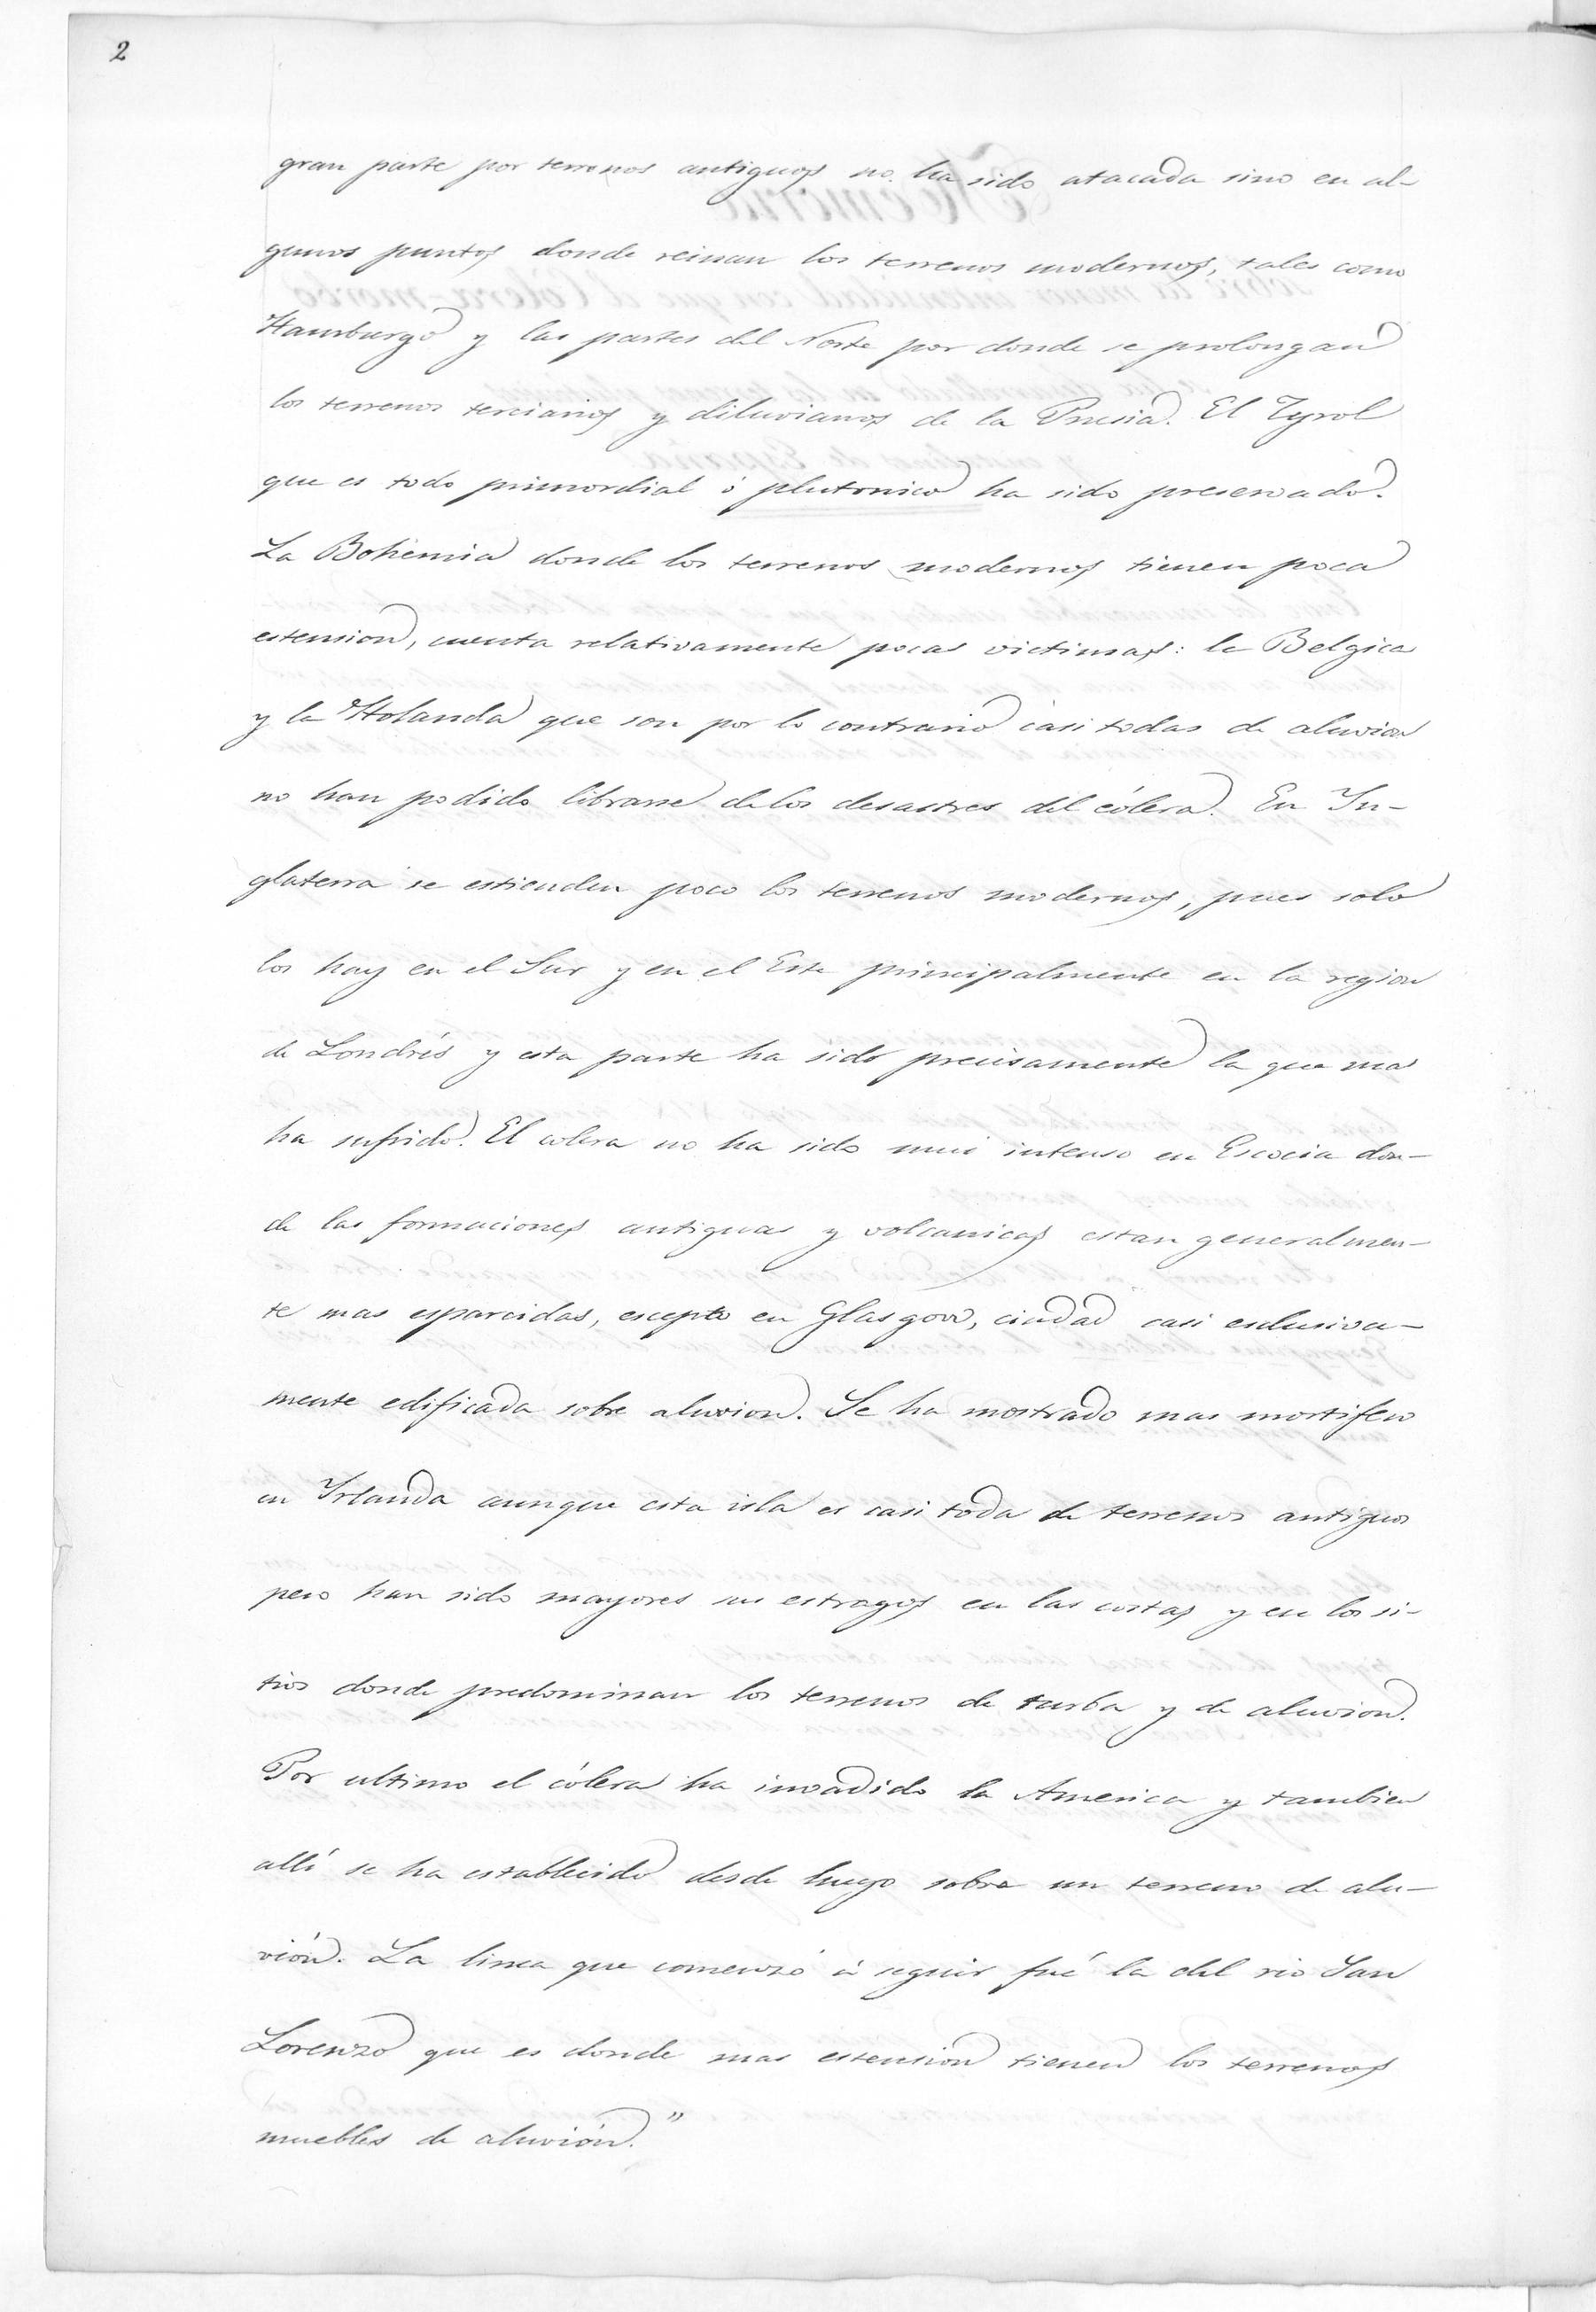 2
gran parte por terrenos antiguos no ha sido atacada sino en al-
gunos puntos donde reinan los terrenos modernos, tales como
Hamburgo y las partes del Norte por donde se prolongan
los terrenos terciarios y diluvianos de la Prusia. El Tyrol
que es todo primordial ó plutonico ha sido preservado.
La Bohemia donde los terrenos modernos tienen poca
estension, cuenta relativamente pocas victimas: la Belgica
y la Holanda que son por lo contrario casi todas de aluvion
no han podido librarse de los desastres del cólera. En In-
glaterra se estienden poco los terrenos modernos, pues solo
los hay en el Sur y en el Este principalmente en la region
de Londrés y esta parte ha sido precisamente la que mas
ha sufrido. El colera no ha sido mui intenso en Escocia don-
de las formaciones antiguas y volcanicas estan generalmen-
te mas esparcidas, escepto en Glasgow, ciudad casi esclusiva-
mente edificada sobre aluvion. Se ha mostrado mas mortifero
en Irlanda aunque esta isla es casi toda de terrenos antiguos
pero han sido mayores sus estragos en las costas y en los si-
tios donde predominan los terrenos de turba y de aluvion.
Por ultimo el cólera ha invadido la America y tambien
allí se ha establecido desde luego sobre un terreno de alu-
vión. La linea que comenzó á seguir fué la del rio San
Lorenzo que es donde mas estension tienen los terrenos
muebles de aluvión."